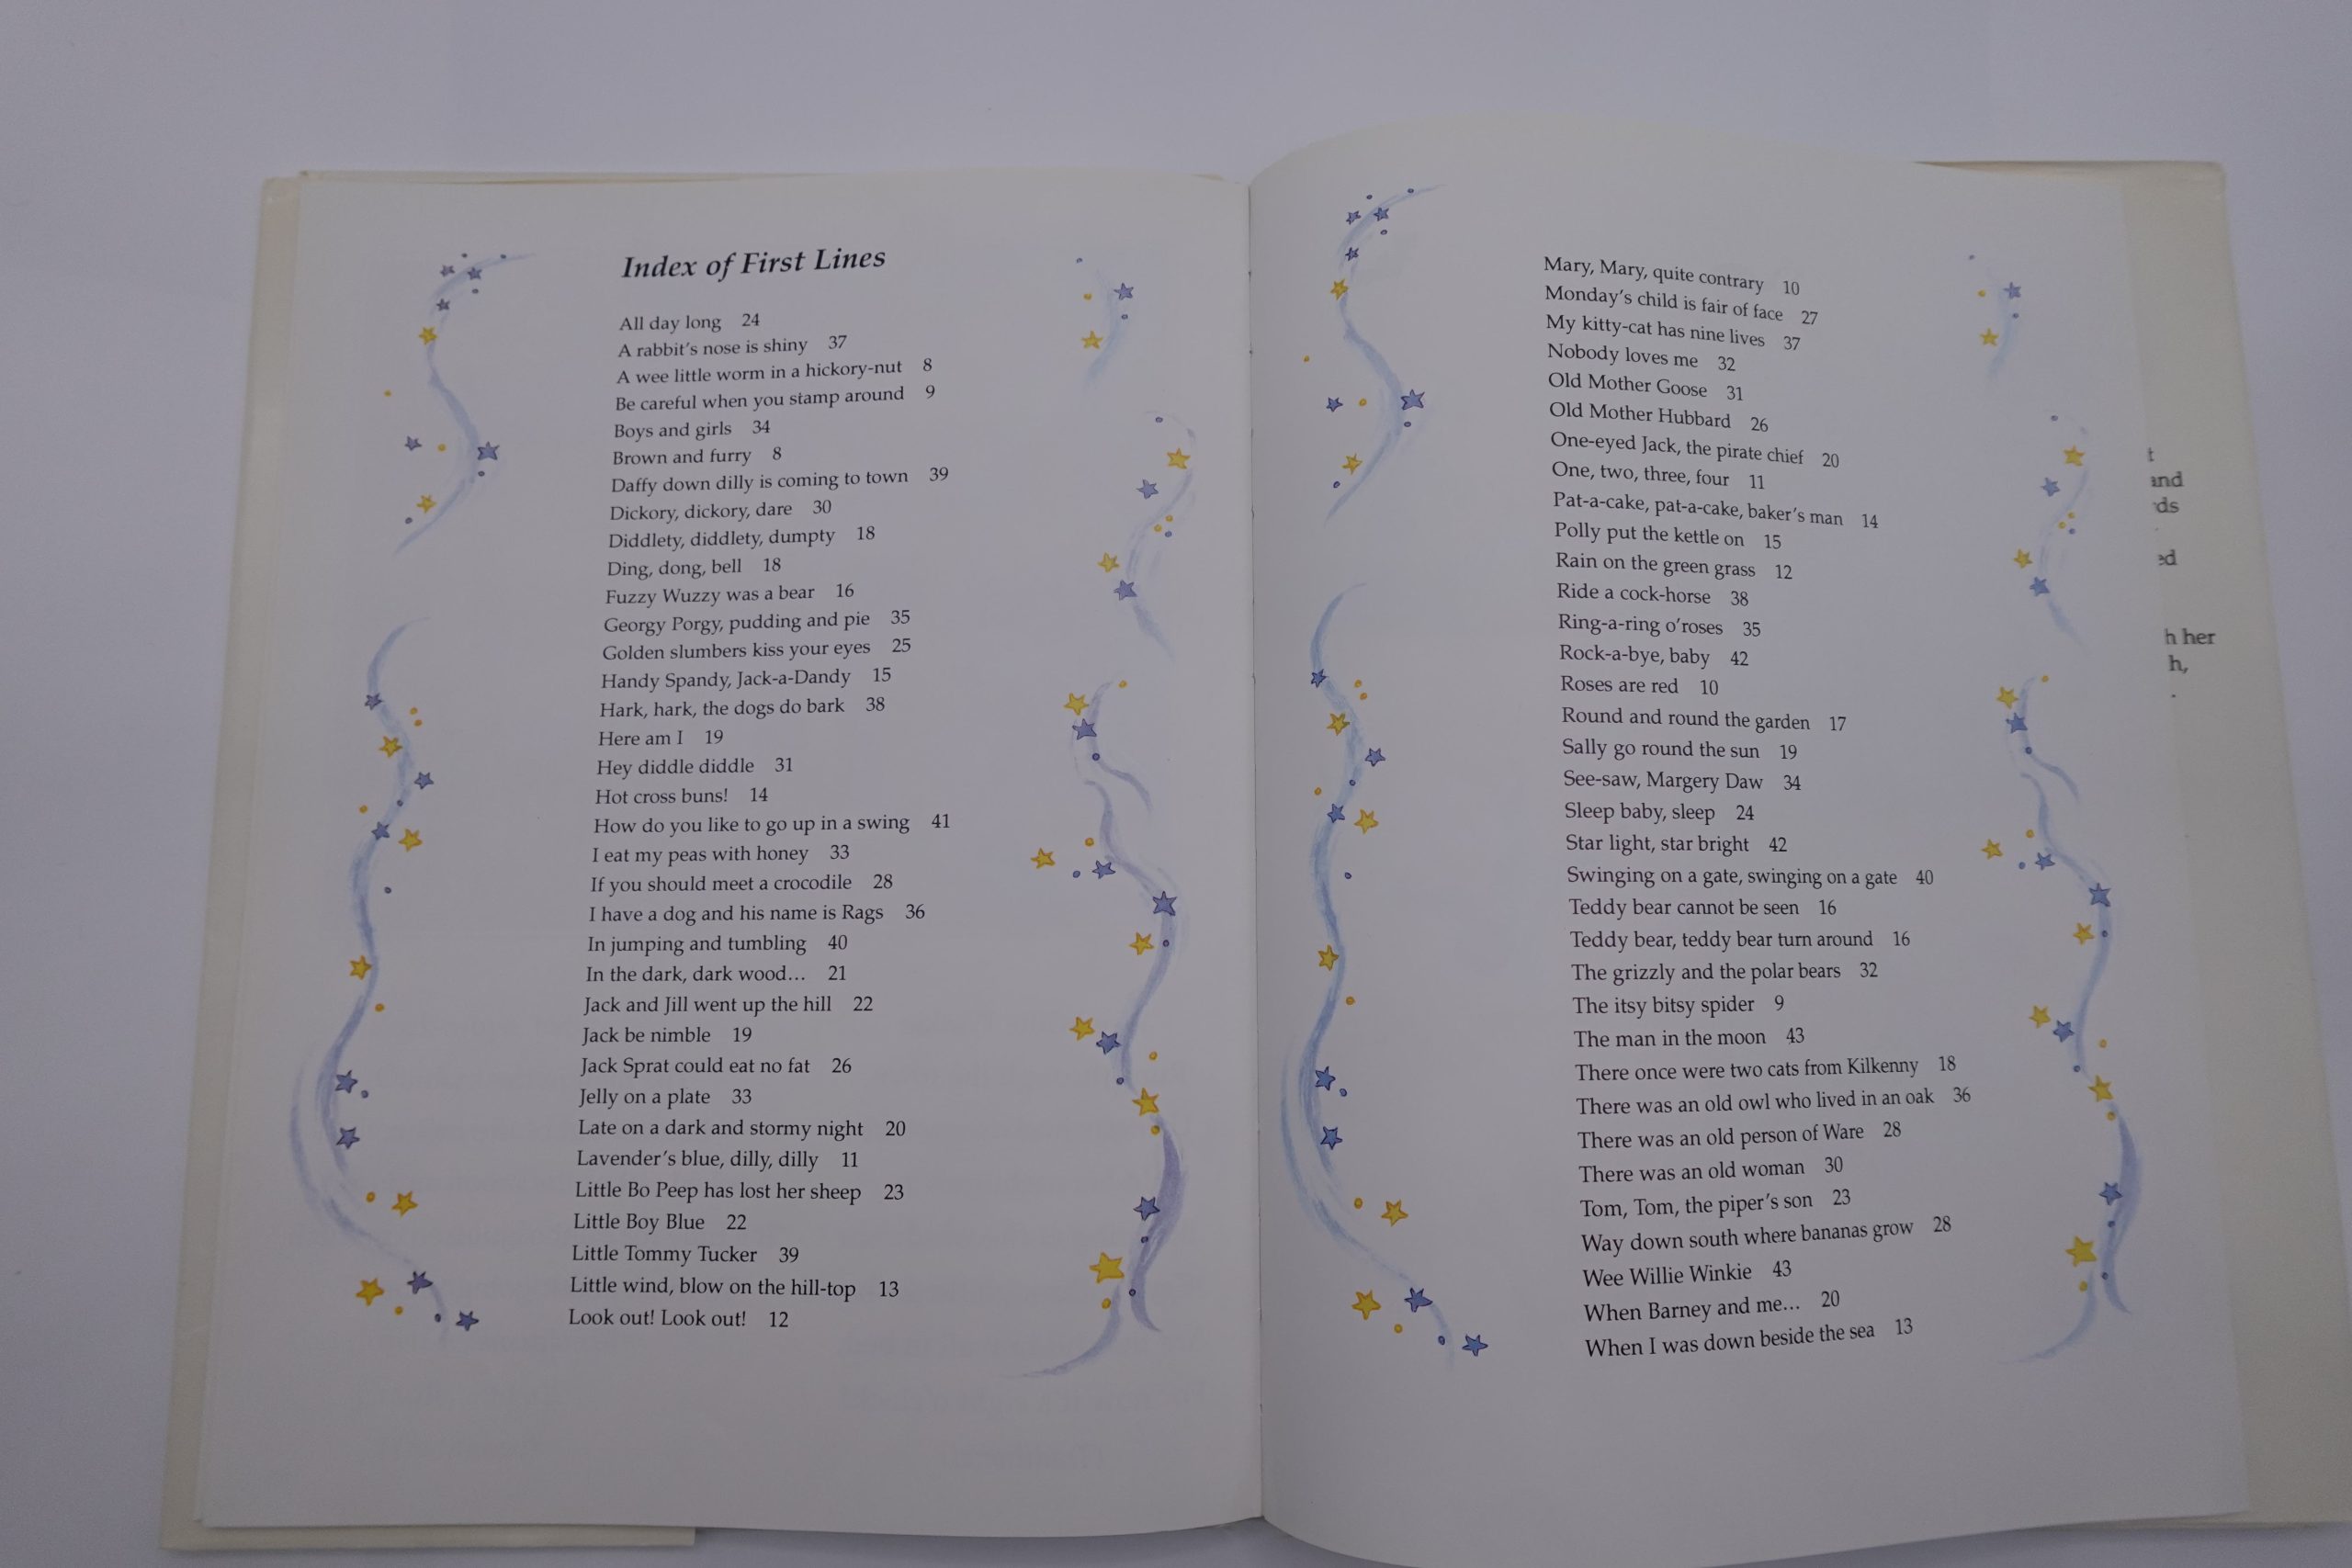 Index of First Lines
All day long 24
A rabbit's nose is shiny 37
A wee little worm in a hickory-nut 8
Be careful when you stamp around 9
Boys and girls 34
Brown and furry 8
Daffy down dilly is coming to town 39
Dickory, dickory, dare 30
Diddlety, diddlety, dumpty 18
Ding, dong, bell 18
Fuzzy Wuzzy was a bear 16
Georgy Porgy, pudding and pie 35
Golden slumbers kiss your eyes 25
Handy Spandy, Jack-a-Dandy 15
Hark, hark, the dogs do bark 38
Here am I 19
Hey diddle diddle 31
Hot cross buns! 14
How do you like to go up in a swing 41
I eat my peas with honey 33
If you should meet a crocodile 28
I have a dog and his name is Rags 36
In jumping and tumbling 40
In the dark, dark wood… 21
Jack and Jill went up the hill 22
Jack be nimble 19
Jack Sprat could eat no fat 26
Jelly on a plate 33
Late on a dark and stormy night 20
Lavender's blue, dilly, dilly 11
Little Bo Peep has lost her sheep 23
Little Boy Blue 22
Little Tommy Tucker 39
Little wind, blow on the hill-top 13
Look out! Look out! 12
Mary, Mary, quite contrary 10
Monday's child is fair of face 27
My kitty-cat has nine lives 37
Nobody loves me 32
Old Mother Goose 31
Old Mother Hubbard 26
One-eyed Jack, the pirate chief 20
One, two, three, four 11
Pat-a-cake, pat-a-cake, baker's man 14
Polly put the kettle on 15
Rain on the green grass 12
Ride a cock-horse 38
Ring-a-ring o'roses 35
Rock-a-bye, baby 42
Roses are red 10
Round and round the garden 17
Sally go round the sun 19
See-saw, Margery Daw 34
Sleep baby, sleep 24
Star light, star bright 42
Swinging on a gate, swinging on a gate 40
Teddy bear cannot be seen 16
Teddy bear, teddy bear turn around 16
The grizzly and the polar bears 32
The itsy bitsy spider 9
The man in the moon 43
There once were two cats from Kilkenny 18
There was an old owl who lived in an oak 36
There was an old person of Ware 28
There was an old woman 30
Tom, Tom, the piper's son 23
Way down south where bananas grow 28
Wee Willie Winkie 43
When Barney and me… 20
When I was down beside the sea 13
her